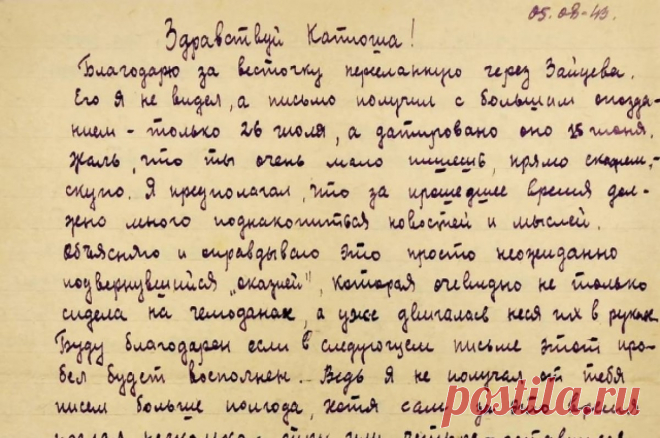 05.08-43.
Здравствуй Катюша!
Благодарю за весточку пересланную через Зайцева.
Его я не видел, а письмо получил с большим опозда-
нием - только 26 июля, а датировано оно 15 июня.
Жаль, что ты очень мало пишешь, прямо скажем,-
скупо. Я предполагал, что за прошедшее время дол-
жно много поднакопиться новостей и мыслей.
Объясняю и оправдываю это просто неожиданно
подвернувшийся "оказией", которая очевидно не только
сидела на чемоданах, а уже двигалась неся их в руках.
Буду благодарен если в следующем письме этот про-
бел будет восполнен. Ведь я не получал от тебя
писем больше полгода, хотя сам за это время
послал несколько
postila.ru